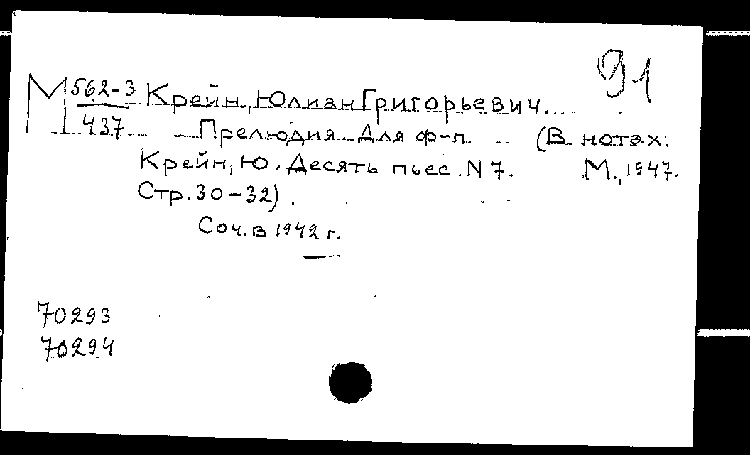 91
М 562-3 Крейн, Юлиан Григорьевич.
437 Прелюдия для ф-п. (В нотах:
Крейн, Ю. Десять пьес. N 7. М., 1947.
Стр. 30-32).
Соч. в 1942 г.
70293
70294